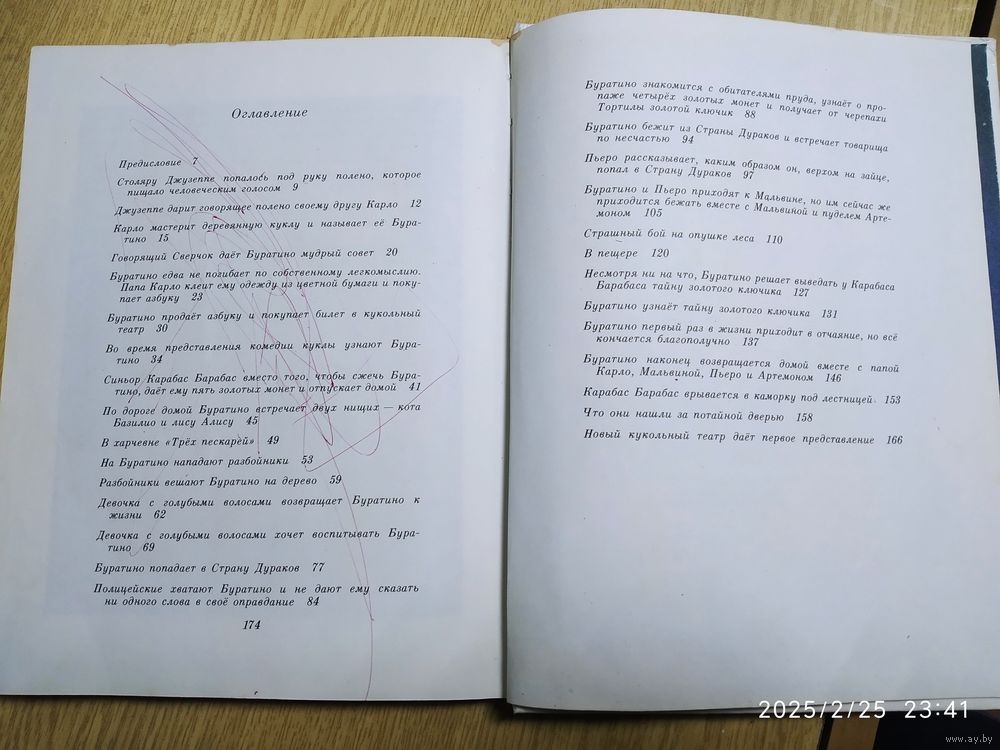 Оглавление
Предисловие 7
Столяру Джузеппе попалось под руку полено, которое
пищало человеческим голосом 9
Джузеппе дарит говорящее полено своему другу Карло 12
Карло мастерит деревянную куклу и называет её Бура-
тино 15
Говорящий Сверчок даёт Буратино мудрый совет 20
Буратино едва не погибает по собственному легкомыслию.
Папа Карло клеит ему одежду из цветной бумаги и поку-
пает азбуку 23
Буратино продаёт азбуку и покупает билет в кукольный
театр 30
Во время представления комедии куклы узнают Бура-
тино 34
Синьор Карабас Барабас вместо того, чтобы сжечь Бура-
тино, даёт ему пять золотых монет и отпускает домой 41
По дороге домой Буратино встречает двух нищих — кота
Базилио и лису Алису 45
В харчевне «Трёх пескарей» 49
На Буратино нападают разбойники 53
Разбойники вешают Буратино на дерево 59
Девочка с голубыми волосами возвращает Буратино к
жизни 62
Девочка с голубыми волосами хочет воспитывать Бура-
тино 69
Буратино попадает в Страну Дураков 77
Полицейские хватают Буратино и не дают ему сказать
ни одного слова в своё оправдание 84
174
Буратино знакомится с обитателями пруда, узнаёт о про-
паже четырёх золотых монет и получает от черепахи
Тортилы золотой ключик 88
Буратино бежит из Страны Дураков и встречает товарища
по несчастью 94
Пьеро рассказывает, каким образом он, верхом на зайце,
попал в Страну Дураков 97
Буратино и Пьеро приходят к Мальвине, но им сейчас же
приходится бежать вместе с Мальвиной и пуделем Арте-
моном 105
Страшный бой на опушке леса 110
В пещере 120
Несмотря ни на что, Буратино решает выведать у Карабаса
Барабаса тайну золотого ключика 127
Буратино узнаёт тайну золотого ключика 131
Буратино первый раз в жизни приходит в отчаяние, но всё
кончается благополучно 137
Буратино наконец возвращается домой вместе с папой
Карло, Мальвиной, Пьеро и Артемоном 146
Карабас Барабас врывается в каморку под лестницей 153
Что они нашли за потайной дверью 158
Новый кукольный театр даёт первое представление 166
2025/2/25 23:41
www.ay.by